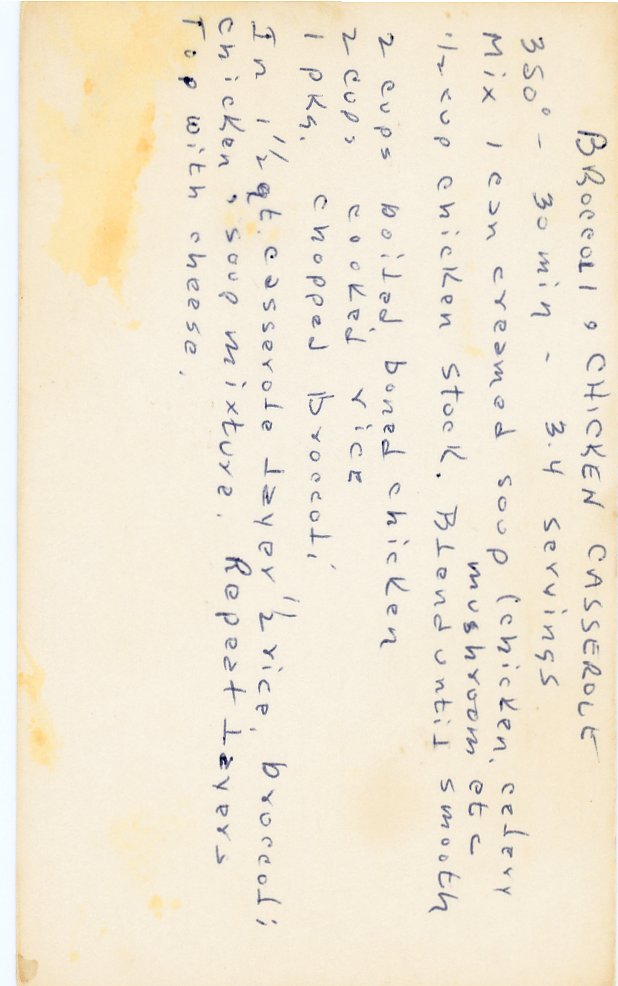 BROCCOLI & CHICKEN CASSEROLE
350° - 30 min - 3-4 servings
Mix 1 can creamed soup (chicken, celery
mushroom etc
1/2 cup chicken stock. Blend until smooth
2 cups boiled boned chicken
2 cups cooked rice
1 pkg. chopped broccoli
In 1 1/2 qt. casserole layer 1/2 rice, broccoli
chicken & soup mixture. Repeat layers
Top with cheese.